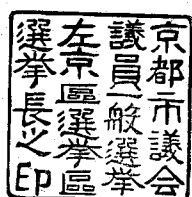 京都市議会
議員一般選挙
左京區選挙區
選挙長之印